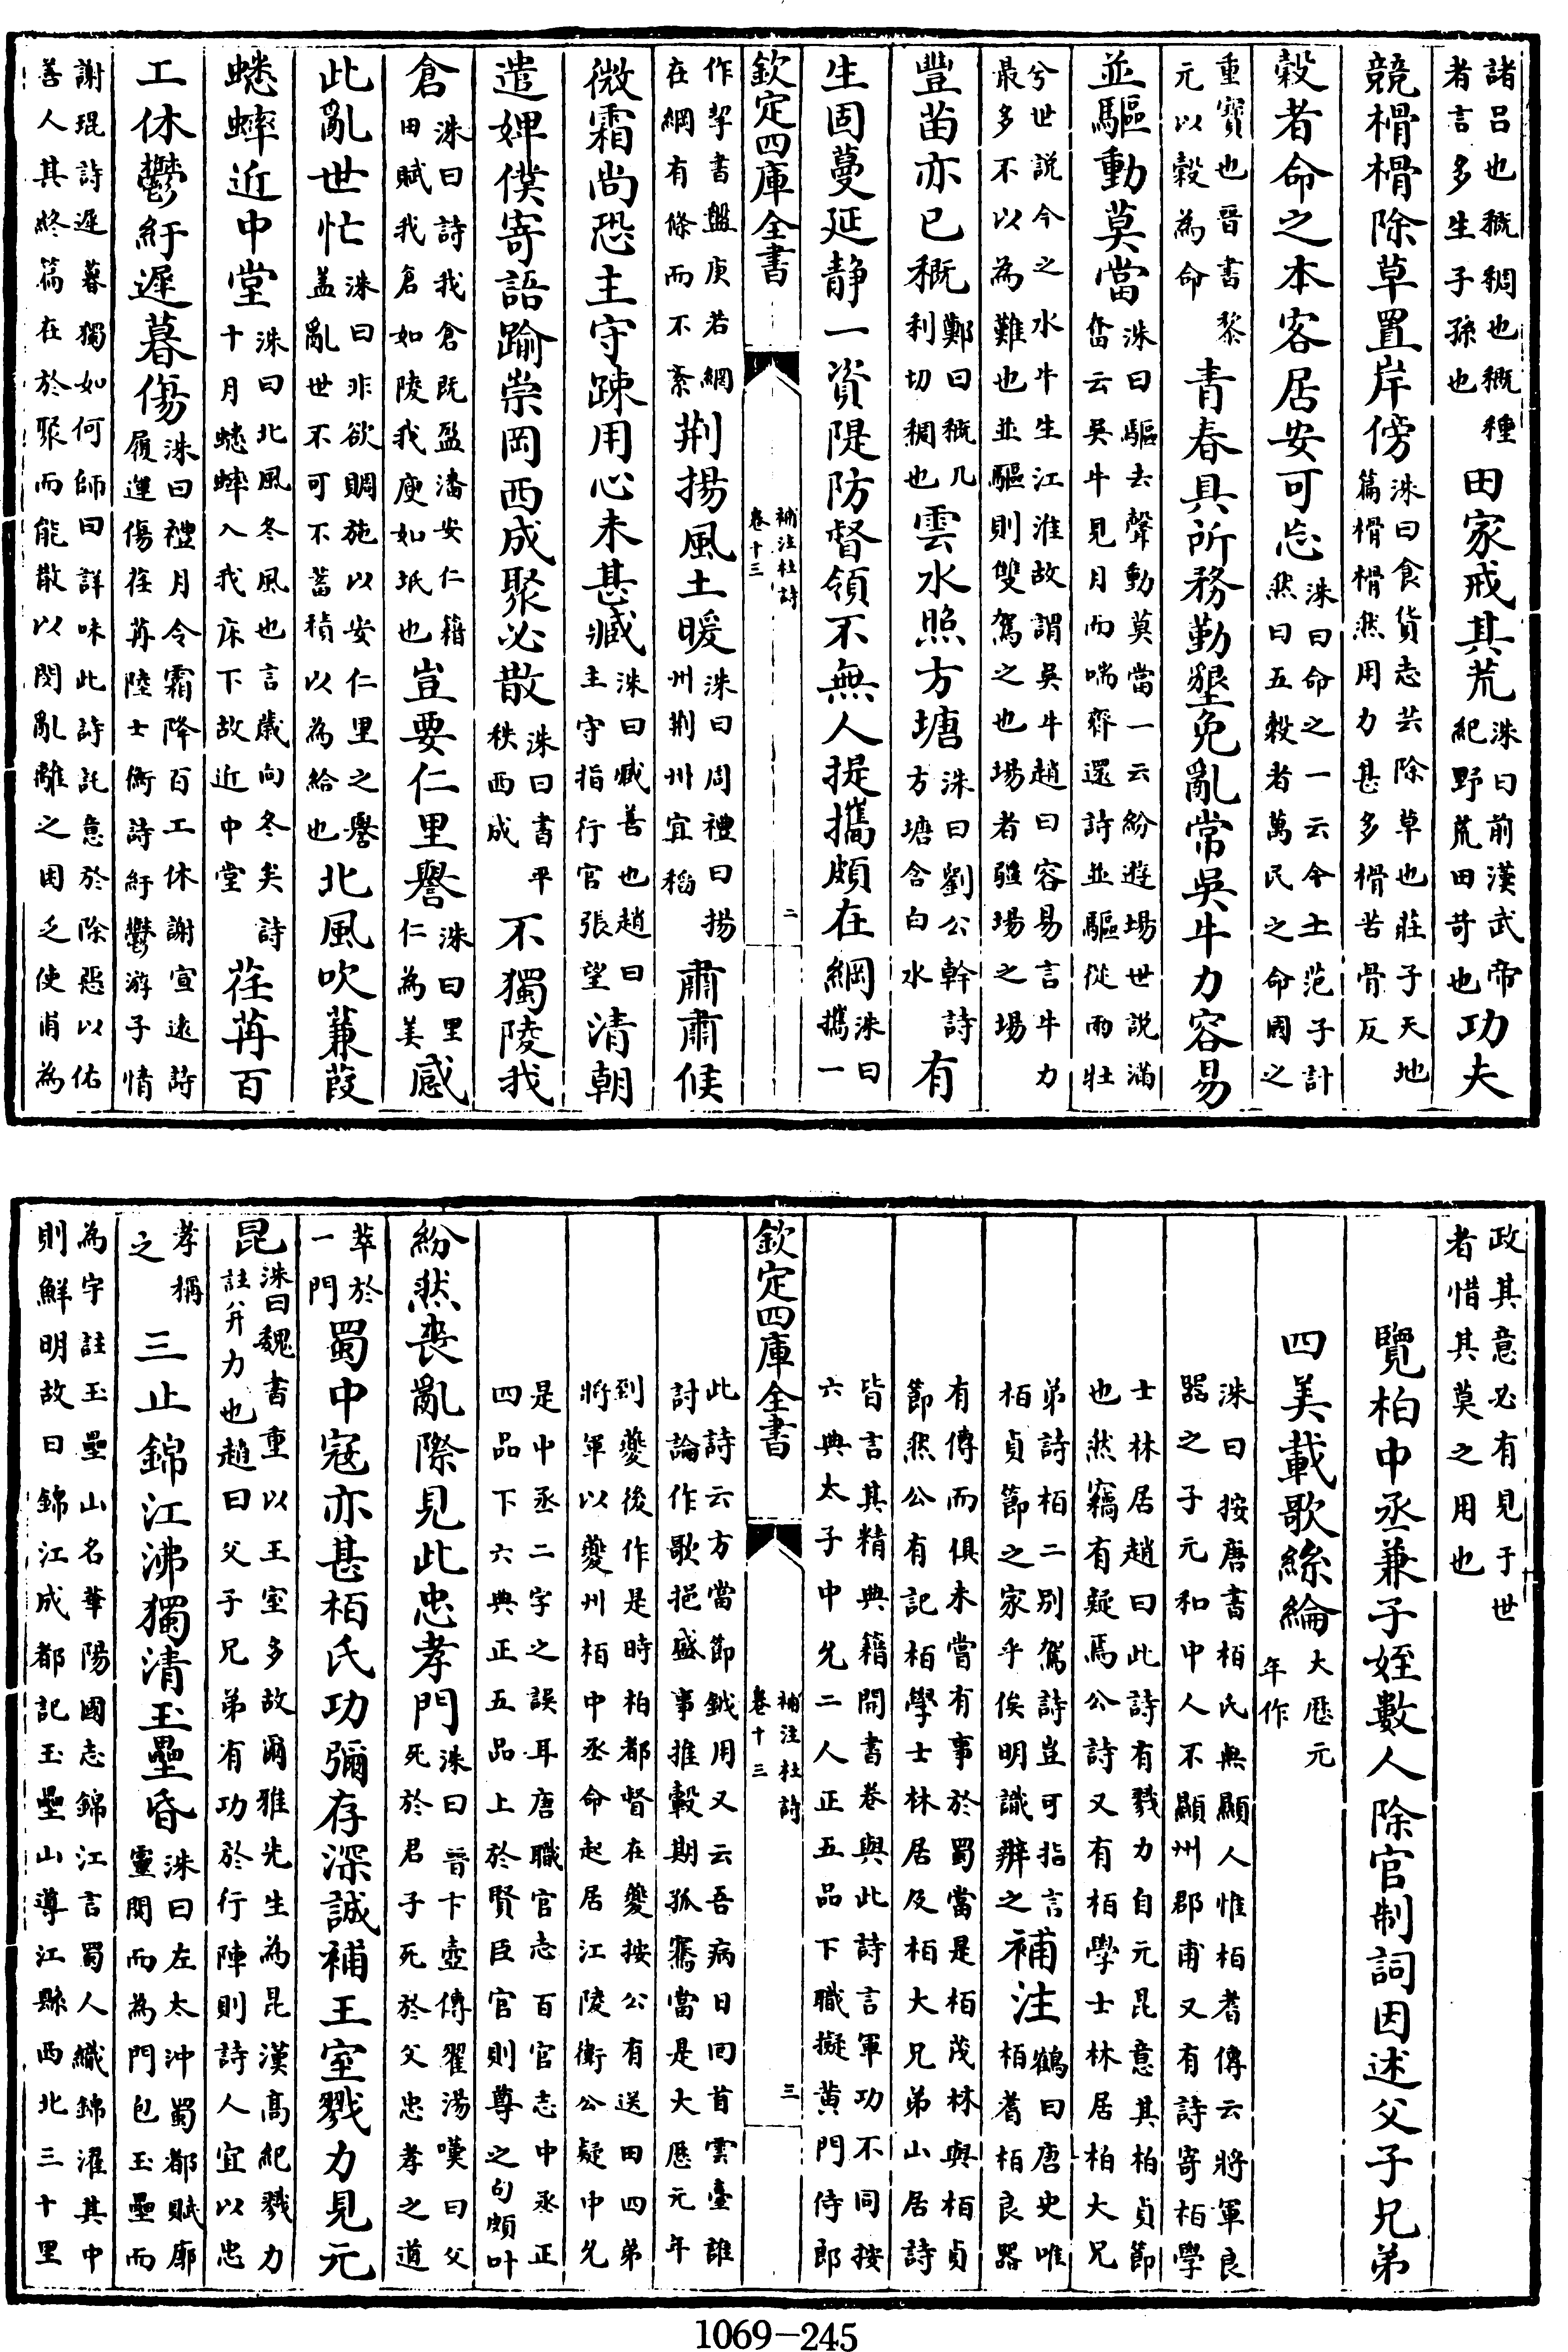 諸呂也穊稠也穊種者言多生子孫也田家戒其荒洙曰前漢武帝紀野荒田苛也功夫
競榾榾除草置岸傍洙曰食貨志芸除草也莊子天地篇榾榾然用力甚多榾苦骨反
穀者命之本客居安可忘洙曰命之一云令土范子計然曰五穀者萬民之命國之
重寳也晉書黎元以穀為命青春具所務勤墾免亂常吳牛力容易
並驅動莫當洙曰驅去聲動莫當一云紛遊場世説滿奮云吳牛見月而喘齊還詩並驅從兩牡
兮世説今之水牛生江淮故謂吳牛趙曰容易言牛力最多不以為難也並驅則雙駕之也場者疆場之場
豐苗亦已穊鄭曰穊几利切稠也雲水照方塘洙曰劉公幹詩方塘含白水有
生固蔓延静一資隄防督領不無人提攜頗在綱洙曰攜一
欽定四庫全書 補注杜詩 卷十三 二
作挈書盤庚若網在綱有條而不紊荆揚風土暖洙曰周禮曰揚州荆州宜稻肅肅候
微霜尚恐主守踈用心未甚臧洙曰臧善也趙曰主守指行官張望清朝
遣婢僕寄語踰崇岡西成聚必散洙曰書平秩西成不獨陵我
倉洙曰詩我倉既盈潘安仁籍田賦我倉如陵我庾如坻也豈要仁里譽洙曰里仁為美感
此亂世忙洙曰非欲賙施以安仁里之譽盖亂世不可不蓄積以為給也北風吹蒹葭
蟋蟀近中堂洙曰北風冬風也言歲向冬矣詩十月蟋蟀入我床下故近中堂荏苒百
工休鬱紆遲暮傷洙曰禮月令霜降百工休謝宣遠詩履運傷荏苒陸士衡詩紆鬱游子情
謝琨詩遲暮獨如何師曰詳味此詩託意於除惡以佑善人其終篇在於聚而能散以閔亂離之困乏使甫為
政其意必有見于世者惜其莫之用也
覽柏中丞兼子姪數人除官制詞因述父子兄弟
四美載歌絲綸大厯元年作
洙曰按唐書柏氏無顯人惟柏耆傳云將軍良器之子元和中人不顯州郡甫又有詩寄柏學
士林居趙曰此詩有戮力自元昆意其柏貞節也然竊有疑焉公詩又有柏學士林居柏大兄
弟詩柏二別駕詩豈可指言柏貞節之家乎俟明識辨之補注鶴曰唐史唯柏耆柏良器
有傳而俱未嘗有事於蜀當是柏茂林與柏貞節然公有記柏學士林居及柏大兄弟山居詩
皆言其精典籍開書卷與此詩言軍功不同按六典太子中允二人正五品下職擬黄門侍郎
欽定四庫全書 補注杜詩 卷十三 三
此詩云方當節鉞用又云吾病日回首雲臺誰討論作歌挹盛事推轂期孤騫當是大厯元年
到夔後作是時柏都督在夔按公有送田四弟將軍以夔州柏中丞命起居江陵衛公疑中允
是中丞二字之誤耳唐職官志百官志中丞正四品下六典正五品上於賢臣官則尊之句頗叶
紛然喪亂際見此忠孝門洙曰晉卞壺傳翟湯嘆曰父死於君子死於父忠孝之道
萃於一門蜀中寇亦甚柏氏功彌存深誠補王室戮力見元
昆洙曰魏書重以王室多故爾雅先生為昆漢高紀戮力註并力也趙曰父子兄弟有功於行陣則詩人宜以忠
孝稱之三止錦江沸獨清玉壘昏洙曰左太沖蜀都賦廓靈關而為門包玉壘而
為宇註玉壘山名華陽國志錦江言蜀人織錦濯其中則鮮明故曰錦江成都記玉壘山導江縣西北三十里
1069-245